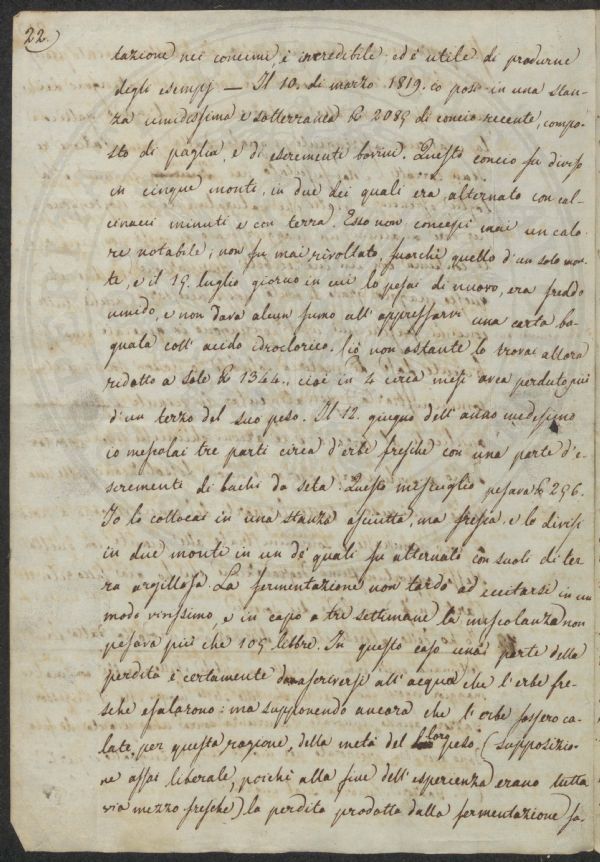 22.
tazione nei concimi, è incredibile ed è utile di produrne
degli esempj — Il 10. di marzo 1819. io posi in una stan-
za umidissima e sotterranea lb 2085 di concio recente, compo-
sto di paglia e di escrementi bovini. Questo concio fu diviso
in cinque monti, in due dei quali era alternato con cal-
cinacci minuti e con terra. Esso non concepì mai un calo-
re notabile, non fu mai rivoltato, fuorchè quello d'un solo mon-
te, e il 15. luglio giorno in cui lo pesai di nuovo, era freddo
umido, e non dava alcun fumo all'appressarvi una carta ba-
gnata coll'acido idroclorico. Ciò non ostante lo trovai allora
ridotto a sole lb 1344., cioè in 4 circa mesi avea perduto più
d'un terzo del suo peso. Il 12. giugno dell'anno medesimo
io mescolai tre parti circa d'erbe fresche con una parte d'e-
scrementi di bachi da seta. Questo miscuglio pesava lb 296.
Io lo collocai in una stanza asciutta, ma fresca, e lo divisi
in due monti in un de' quali fu alternato con suoli di ter-
ra argillosa. La fermentazione non tardò ad eccitarsi in un
modo vivissimo, e in capo a tre settimane la miscolanza non
pesava più che 105 libbre. In questo caso una parte della
perdita è certamente da ascriversi all'acqua che l'erbe fre-
sche esalarono: ma supponendo ancora che l'erbe fossero ca-
late, per questa ragione, della metà del loro peso, (supposizio-
ne assai liberale, poichè alla fine dell'esperienza erano tutta
via mezzo fresche) la perdita prodotta dalla fermentazione sa-